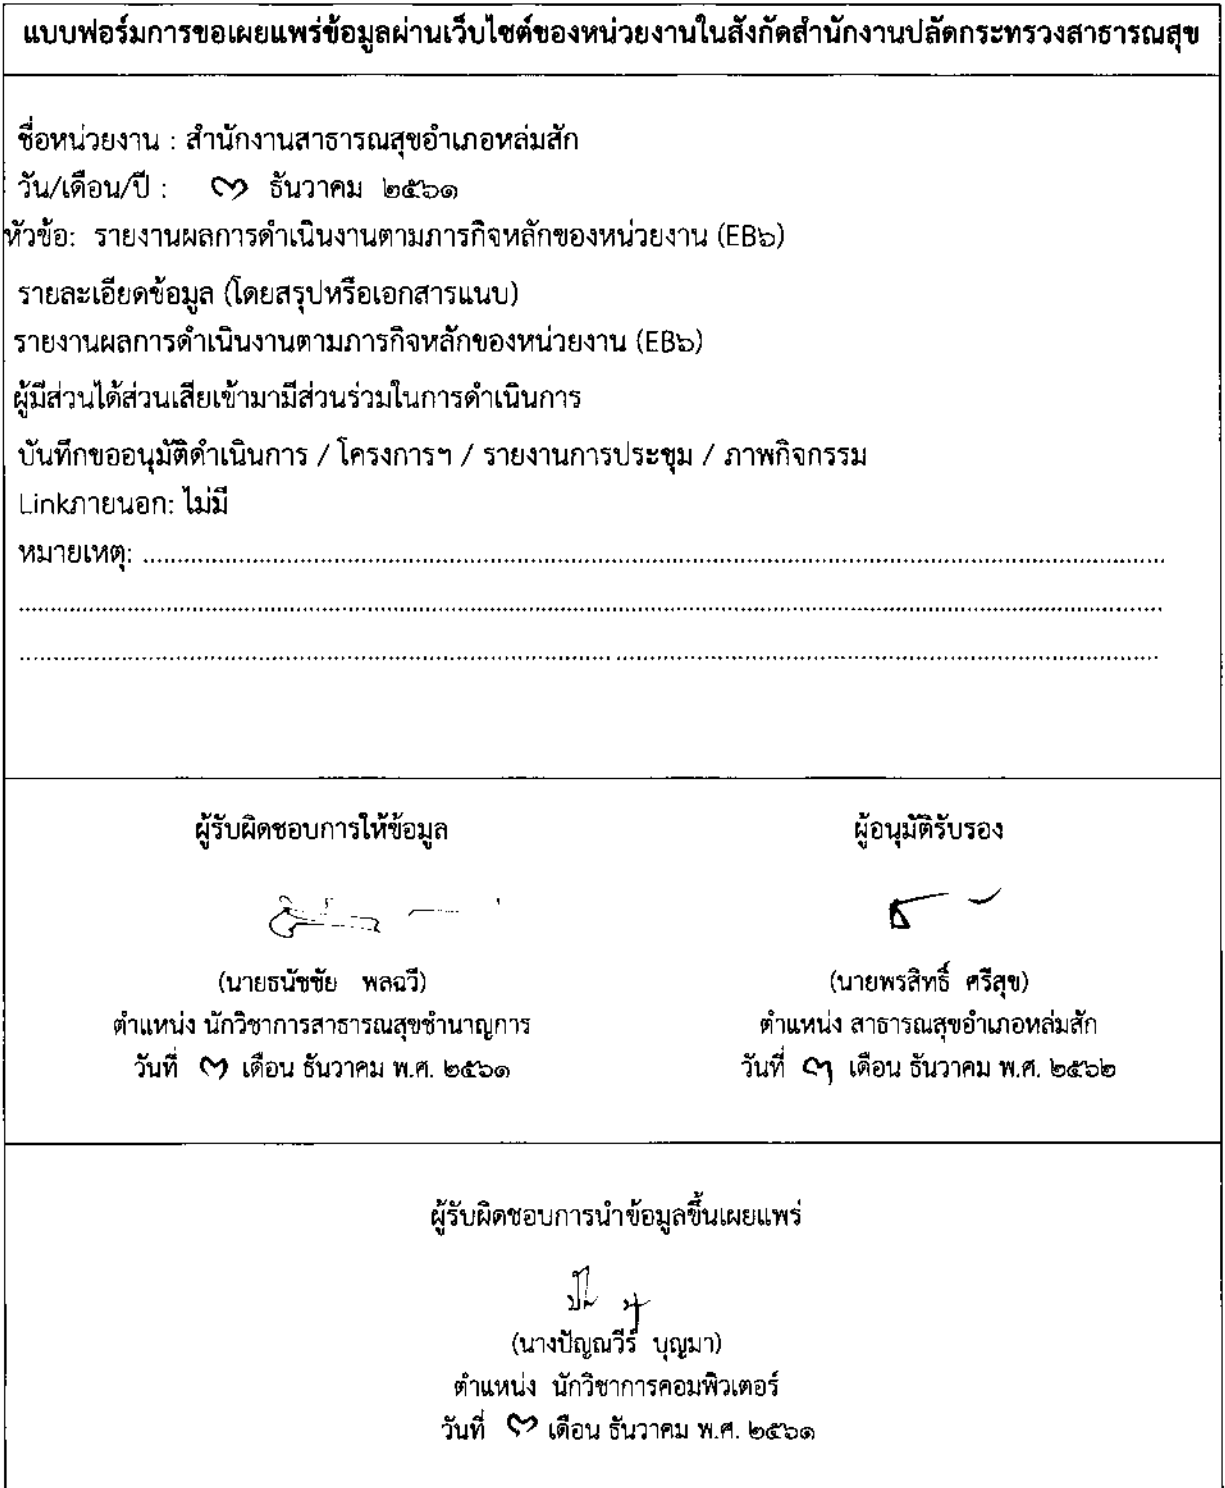 แบบฟอร์มการขอเผยแพร่ข้อมูลผ่านเว็บไซต์ของหน่วยงานในสังกัดสำนักงานปลัดกระทรวงสาธารณสุข
ชื่อหน่วยงาน : สำนักงานสาธารณสุขอำเภอหล่มสัก
วัน/เดือน/ปี : ๓ ธันวาคม ๒๕๖๑
หัวข้อ: รายงานผลการดำเนินงานตามภารกิจหลักของหน่วยงาน (EB๖)
รายละเอียดข้อมูล (โดยสรุปหรือเอกสารแนบ)
รายงานผลการดำเนินงานตามภารกิจหลักของหน่วยงาน (EB๖)
ผู้มีส่วนได้ส่วนเสียเข้ามามีส่วนร่วมในการดำเนินการ
บันทึกขออนุมัติดำเนินการ / โครงการฯ / รายงานการประชุม / ภาพกิจกรรม
Linkภายนอก: ไม่มี
หมายเหตุ: ........................................................................
........................................................................
........................................................................
ผู้รับผิดชอบการให้ข้อมูล
ผู้อนุมัติรับรอง
(นายธนัชชัย พลฉวี)
(นายพรสิทธิ์ ศรีสุข)
ตำแหน่ง นักวิชาการสาธารณสุขชำนาญการ
ตำแหน่ง สาธารณสุขอำเภอหล่มสัก
วันที่ ๓ เดือน ธันวาคม พ.ศ. ๒๕๖๑
วันที่ ๓ เดือน ธันวาคม พ.ศ. ๒๕๖๒
ผู้รับผิดชอบการนำข้อมูลขึ้นเผยแพร่
(นางปัญณวีร์ บุญมา)
ตำแหน่ง นักวิชาการคอมพิวเตอร์
วันที่ ๓ เดือน ธันวาคม พ.ศ. ๒๕๖๑